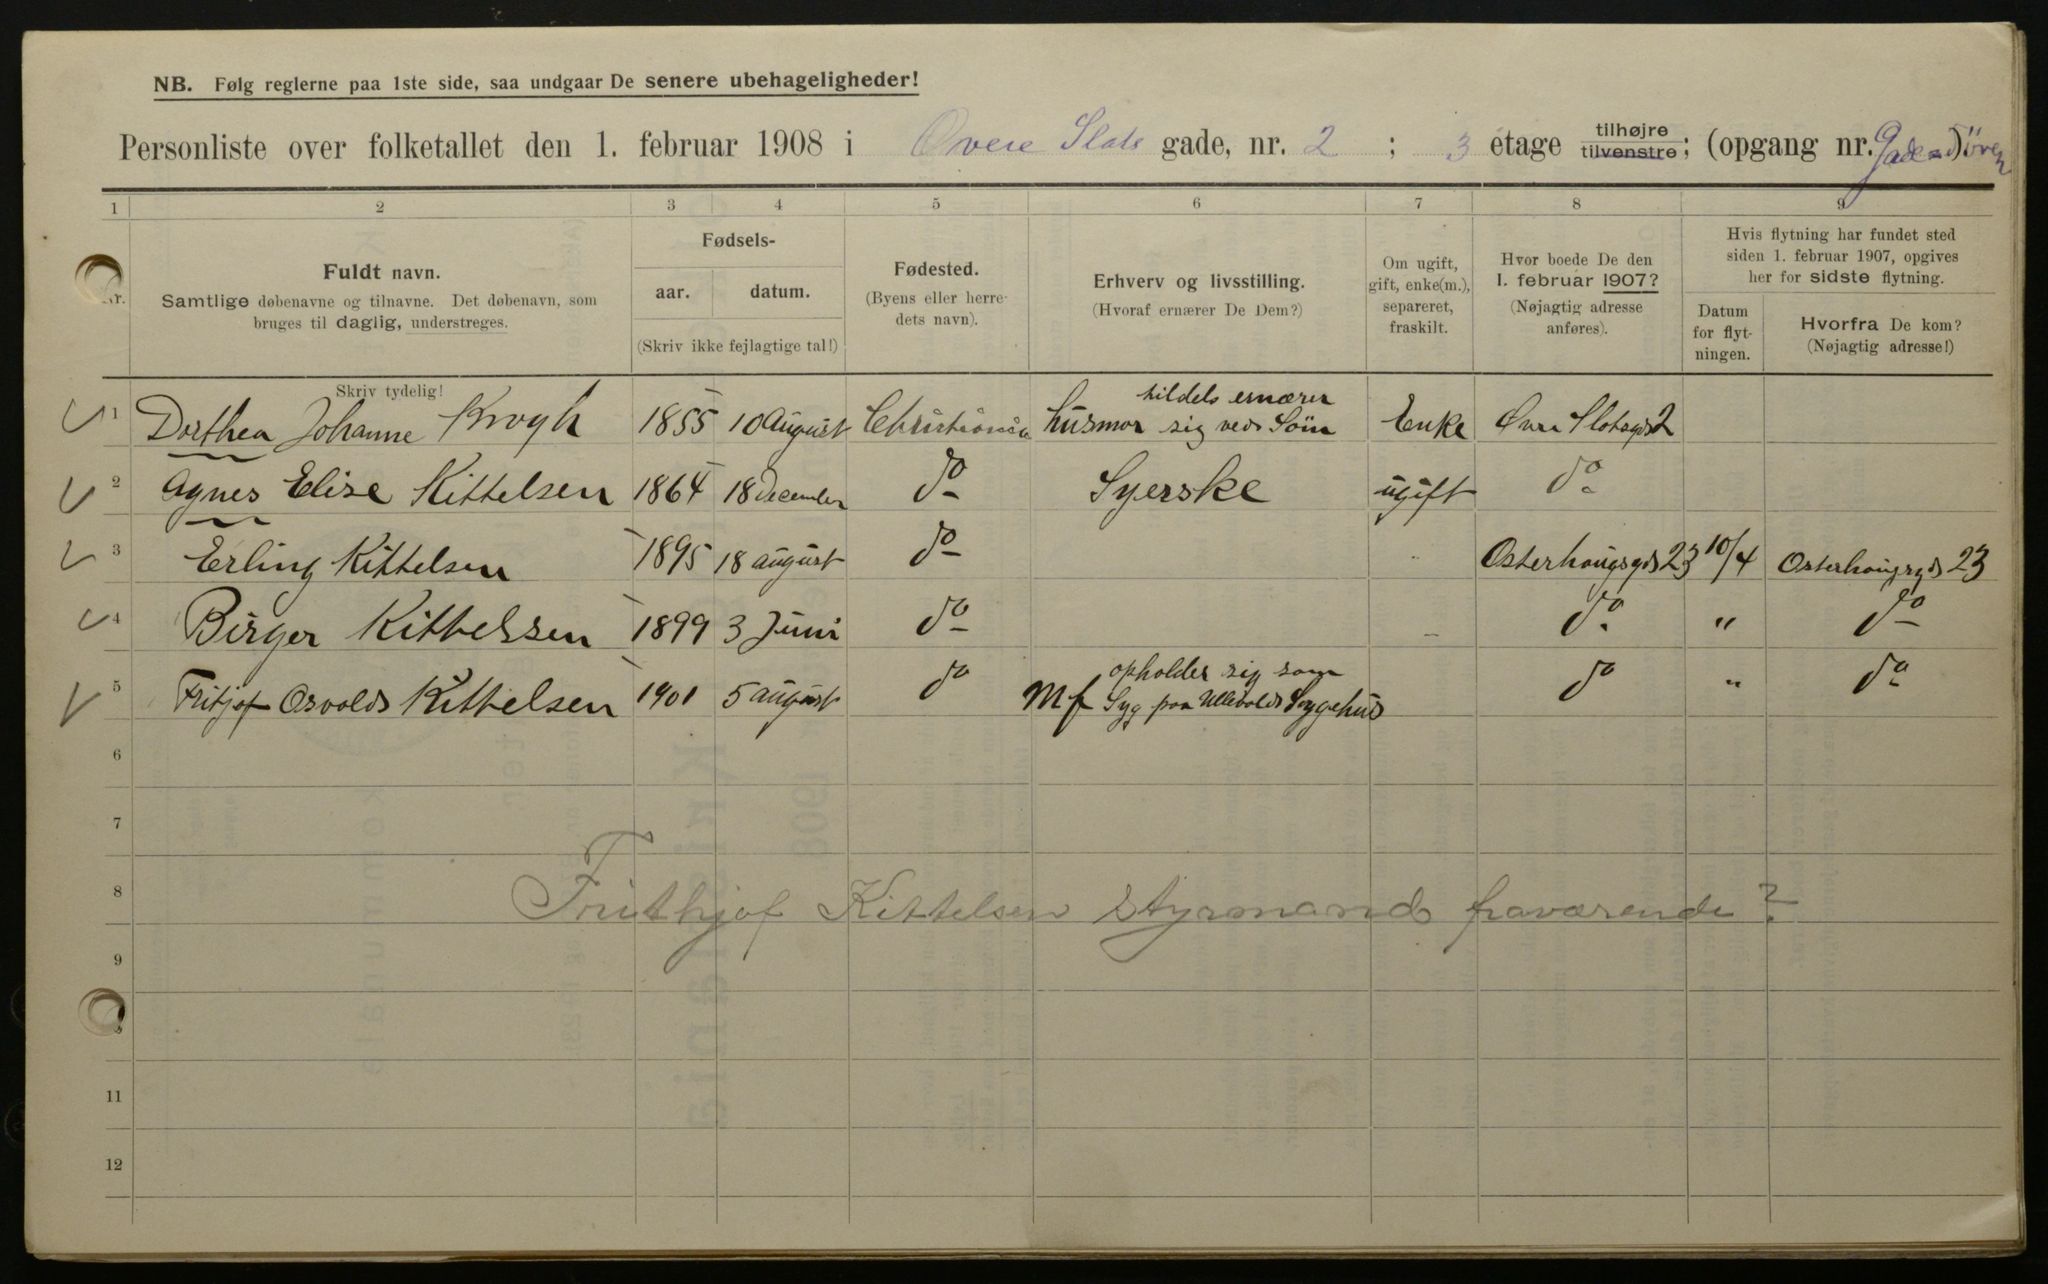 NB. Følg reglerne paa 1ste side, saa undgaar De senere ubehageligheder!
Personliste over folketallet den 1. februar 1908 i Øvere Slots gade, nr. 2 ; 3 etage tilhøjre tilvenstre ; (opgang nr. Gadedören)
1 2 3 4 5 6 7 8 9
Nr.
Fuldt navn.
Samtlige døbenavne og tilnavne. Det døbenavn, som
bruges til daglig, understreges.
Skriv tydelig!
Fødsels-
aar. datum.
(Skriv ikke fejlagtige tal!)
Fødested.
(Byens eller herre-
dets navn).
Erhverv og livsstilling.
(Hvoraf ernærer De Dem?)
Om ugift,
gift, enke(m.),
separeret,
fraskilt.
Hvor boede De den
1. februar 1907?
(Nøjagtig adresse
anføres).
Hvis flytning har fundet sted
siden 1. februar 1907, opgives
her for sidste flytning.
Datum
for flyt-
ningen.
Hvorfra De kom?
(Nøjagtig adresse!)
1 Dorthea Johanne Krogh 1855 10 August Christiania husmor tildels ernærer sig ved Sön Enke Øvre Slotsgd 2
2 Agnes Elise Kittelsen 1864 18 December do Syerske ugift do
3 Erling Kittelsen 1895 18 august do Osterhougsgd 23 10/4 Osterhougsgd 23
4 Birger Kittelssen 1899 3 Juni do do " do
5 Fritjof Osvald Kittelsen 1901 5 august do Mf opholder sig som Syg paa Ullevolds Sygehus do " do
6
7
8 Frithjof Kittelsen styrmand fraværende?
9
11
12